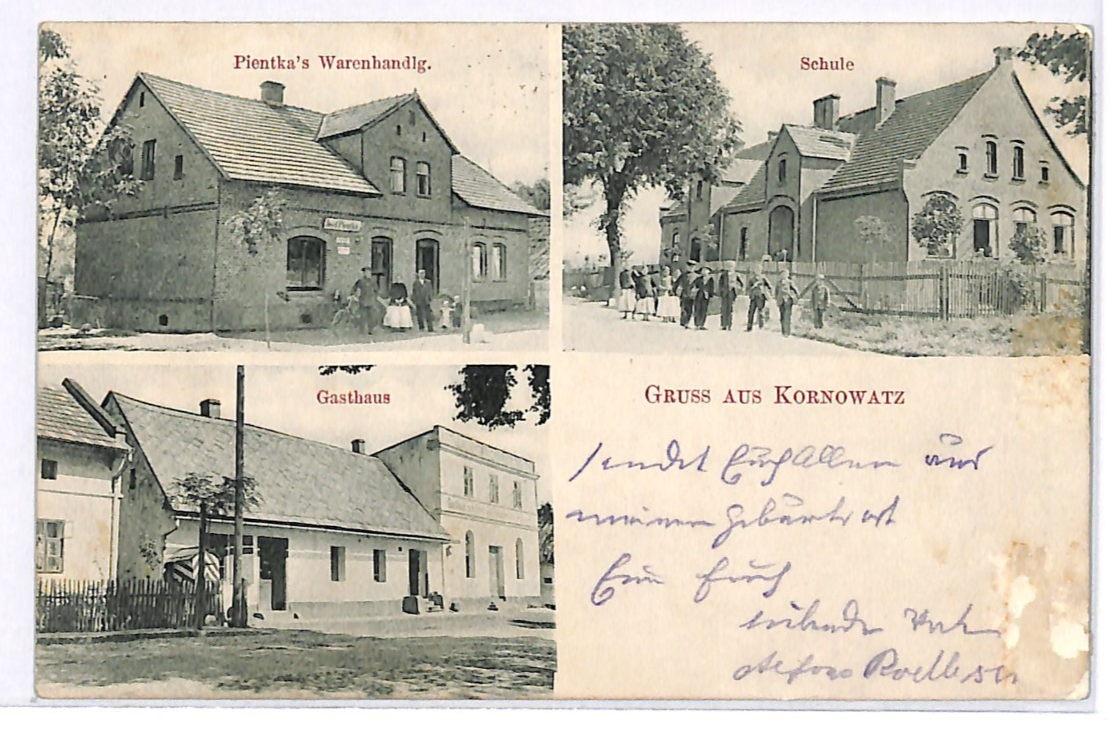 Pientka's Warenhandlg.
Schule
Gasthaus
GRUSS AUS KORNOWATZ
sendet Euch Allen aus
meinem Gebürtsort
Eüer Euch
liebender Vater